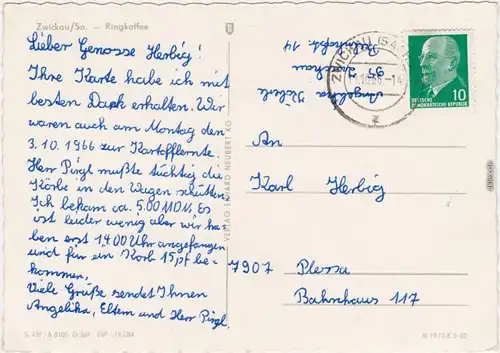 Zwickau/Sa. – Ringkaffee
Lieber Genosse Herbig!
Ihre Karte habe ich mit
besten Dank erhalten. Wir
waren auch am Montag den
3.10.1966 zur Kartoffelernte.
Herr Pirgl mußte tüchtig die
Körbe in den Wagen schütten.
Ich bekam ca. 5.00 MDN. Es
ist leider wenig aber wir ha-
ben erst 14.00 Uhr angefangen
und für ein Korb 15 pf be-
kommen.
Viele Grüße sendet Ihnen
Angelika, Eltern und Herr Pirgl.
VERLAG ERHARD NEUBERT KG
Angelika
95 Zwickau
14
ZWICKAU (SA
z
10
DEUTSCHE
DEMOKRATISCHE REPUBLIK
An
Karl Herbig
7907 Plessa
Bahnhaus 117